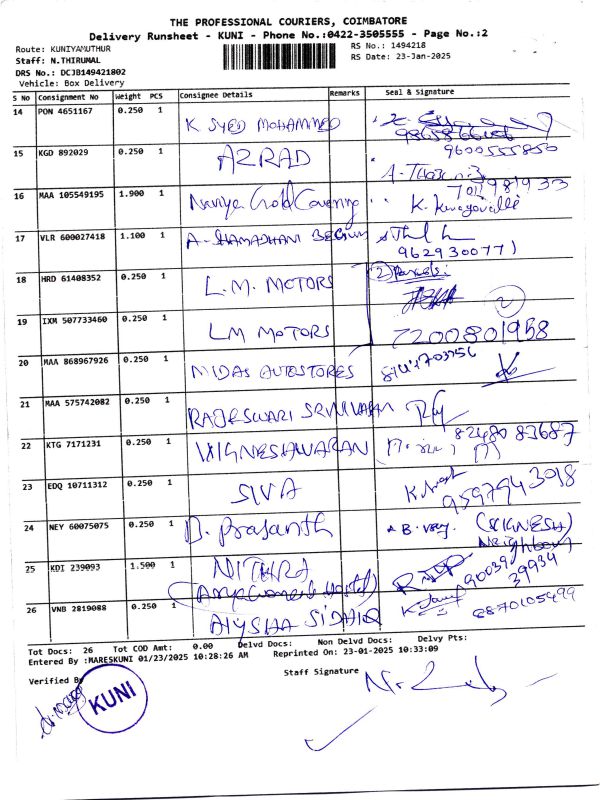 THE PROFESSIONAL COURIERS, COIMBATORE
Delivery Runsheet - KUNI - Phone No.:0422-3505555 - Page No.:2
Route: KUNIYAMUTHUR
RS No.: 1494218
Staff: N.THIRUMAL
RS Date: 23-Jan-2025
DRS No.: DCJB149421802
Vehicle: Box Delivery
S No Consignment No Weight PCS Consignee Details Remarks Seal & Signature
14 PON 4651167 0.250 1 K SYED MOHAMMED
15 KGD 892029 0.250 1 AZRAD 9600555850
16 MAA 105549195 1.900 1 Gold Covering
17 VLR 600027418 1.100 1 A. SHAMADHANI BEGUM
9629300771
18 HRD 61408352 0.250 1 L.M. MOTORS
19 IXM 507733460 0.250 1 LM MOTORS 7200801958
20 MAA 868967926 0.250 1 MIDAS AUTOSTORES
21 MAA 575742082 0.250 1 RAJESWARI SRINIVASAN
22 KTG 7171231 0.250 1 VIGNESHWARAN 82480 83687
23 EDQ 10711312 0.250 1 SIVA 9597943018
24 NEY 60075075 0.250 1 D. Prasanth (VIGNESH)
Neighbour
25 KDI 239093 1.500 1 NITHRA 90039 39934
26 VNB 2819088 0.250 1 AIYSHA SIDHIQ 8870105499
Tot Docs: 26 Tot COD Amt: 0.00 Delvd Docs: Non Delvd Docs: Delvy Pts:
Entered By :MARESKUNI 01/23/2025 10:28:26 AM Reprinted On: 23-01-2025 10:33:09
Verified By
Staff Signature
KUNI